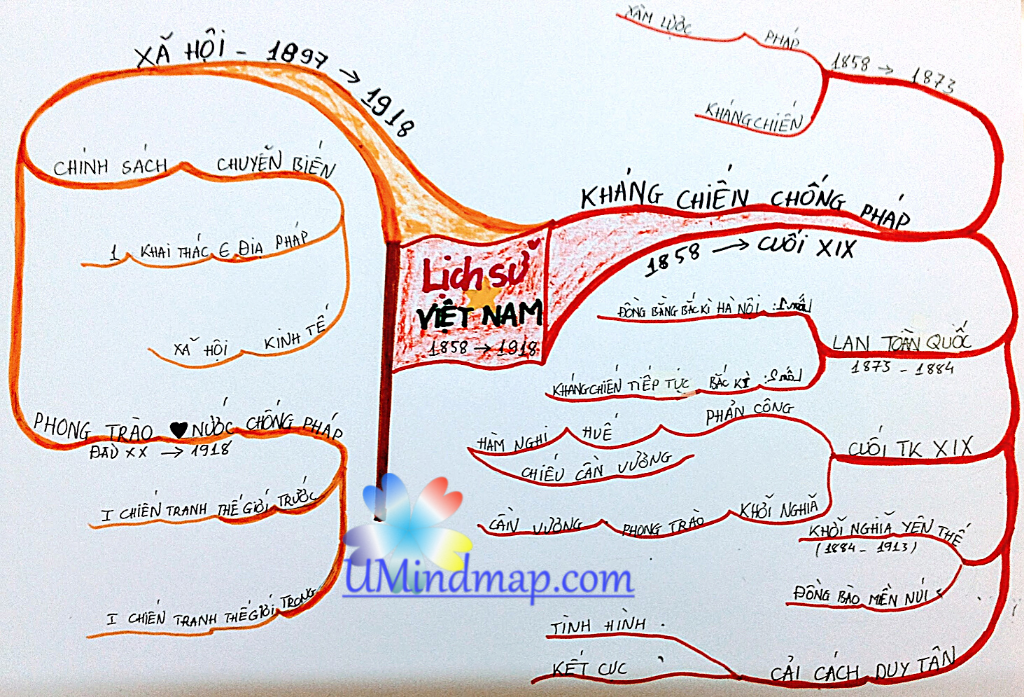 Lịch sử
VIỆT NAM
1858 → 1918
XÃ HỘI - 1897 → 1918
CHÍNH SÁCH CHUYỂN BIẾN
1 KHAI THÁC ĐỊA PHÁP
XÃ HỘI KINH TẾ
PHONG TRÀO ♥ NƯỚC CHỐNG PHÁP
ĐẦU XX → 1918
I CHIẾN TRANH THẾ GIỚI TRƯỚC
I CHIẾN TRANH THẾ GIỚI TRONG
KHÁNG CHIẾN CHỐNG PHÁP
1858 → CUỐI XIX
1858 → 1873
XÂM LƯỢC PHÁP
KHÁNG CHIẾN
LAN TOÀN QUỐC
1873 - 1884
ĐỒNG BẰNG BẮC KÌ HÀ NỘI :1
KHÁNG CHIẾN TIẾP TỤC BẮC KÌ :2
CUỐI TK XIX
PHẢN CÔNG
HÀM NGHI HUẾ
CHIẾU CẦN VƯƠNG
CẦN VƯƠNG PHONG TRÀO KHỞI NGHĨA
KHỞI NGHĨA YÊN THẾ
(1884 - 1913)
ĐỒNG BÀO MIỀN NÚI
CẢI CÁCH DUY TÂN
TÌNH HÌNH
KẾT CỤC
UMindmap.com